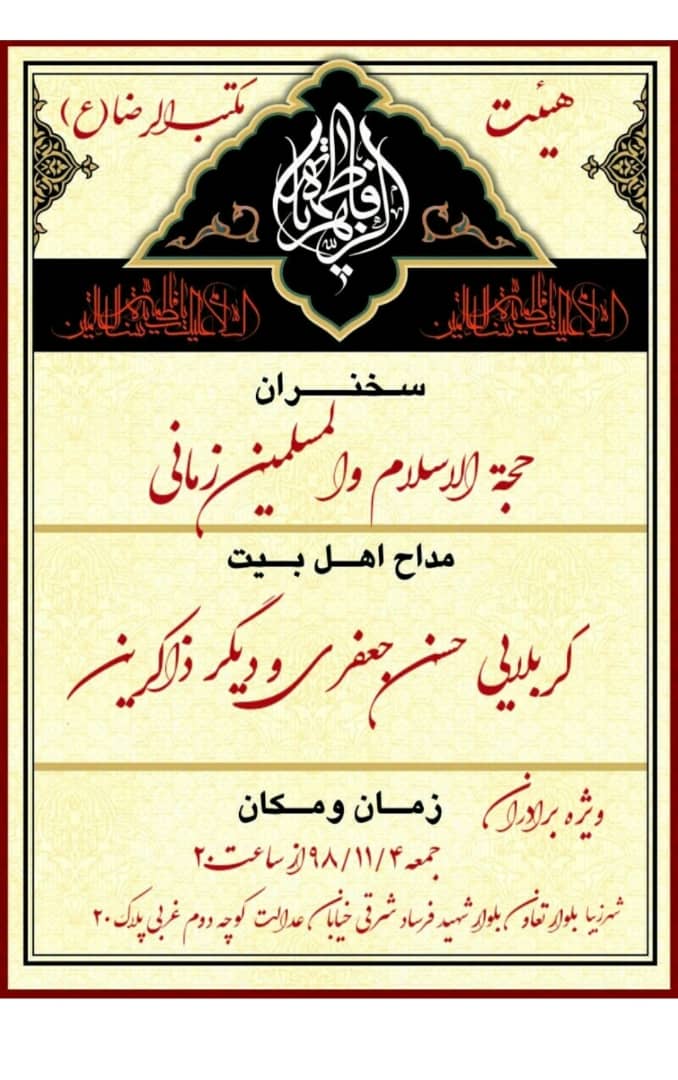 هیئت مکتب الرضا(ع)
یا فاطمة الزهرا
السلام علیک یا فاطمة الزهرا سیدة نساء العالمین
السلام علیک یا فاطمة الزهرا سیدة نساء العالمین
سخنران
حجة الاسلام والمسلمین زمانی
مداح اهل بیت
کربلایی حسن جعفری و دیگر ذاکرین
ویژه برادران
زمان ومکان
جمعه ۹۸/۱۱/۴ از ساعت ۲۰
شهرزیبا بلوار تعاون بلوار شهید فرساد شرقی خیابان عدالت کوچه دوم غربی پلاک ۲۰